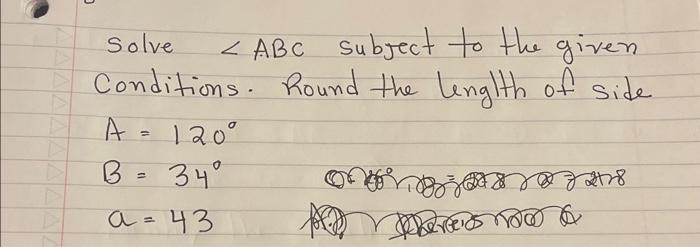 Solve < ABC subject to the given
Conditions. Round the lenglth of side
A = 120°
B = 34°
a = 43